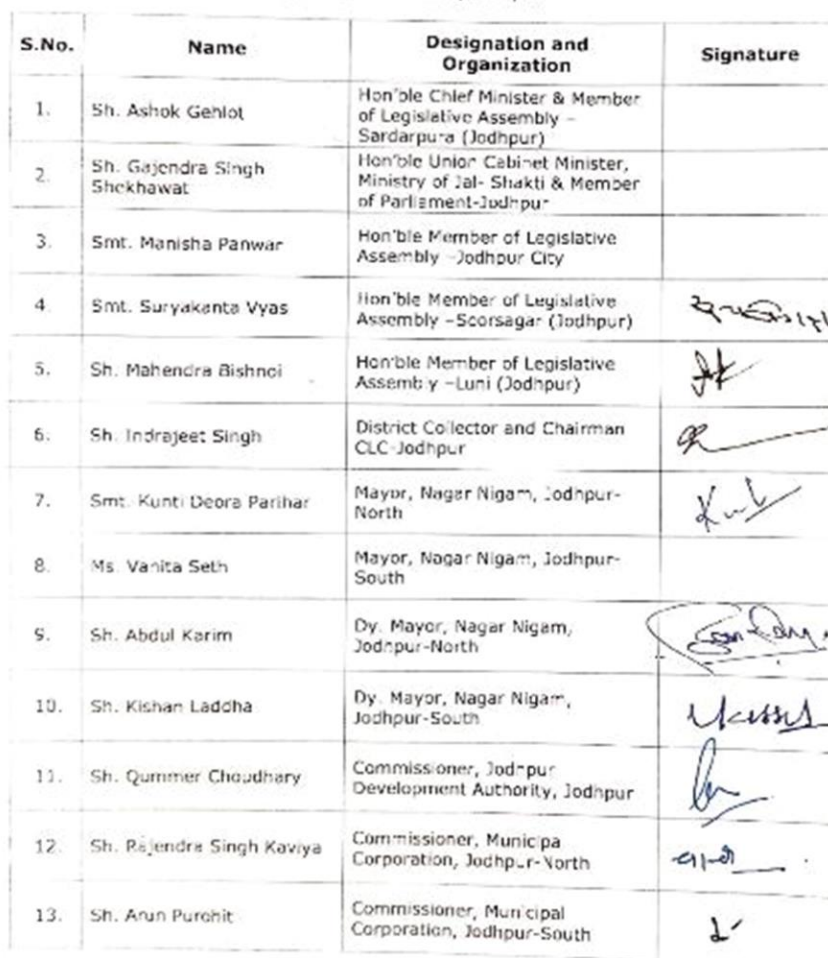 S.No. Name Designation and Organization Signature
1. Sh. Ashok Gehlot Hon'ble Chief Minister & Member
of Legislative Assembly –
Sardarpura (Jodhpur)
2. Sh. Gajendra Singh Shekhawat Hon'ble Union Cabinet Minister,
Ministry of Jal- Shakti & Member
of Parliament-Jodhpur
3. Smt. Manisha Panwar Hon'ble Member of Legislative
Assembly –Jodhpur City
4. Smt. Suryakanta Vyas Hon'ble Member of Legislative
Assembly –Soorsagar (Jodhpur)
5. Sh. Mahendra Bishnoi Hon'ble Member of Legislative
Assembly –Luni (Jodhpur)
6. Sh. Indrajeet Singh District Collector and Chairman
CLC-Jodhpur
7. Smt. Kunti Deora Parihar Mayor, Nagar Nigam, Jodhpur-
North
8. Ms. Vanita Seth Mayor, Nagar Nigam, Jodhpur-
South
9. Sh. Abdul Karim Dy. Mayor, Nagar Nigam,
Jodhpur-North
10. Sh. Kishan Laddha Dy. Mayor, Nagar Nigam,
Jodhpur-South
11. Sh. Qummer Choudhary Commissioner, Jodhpur
Development Authority, Jodhpur
12. Sh. Rajendra Singh Kaviya Commissioner, Municipal
Corporation, Jodhpur-North
13. Sh. Arun Purohit Commissioner, Municipal
Corporation, Jodhpur-South